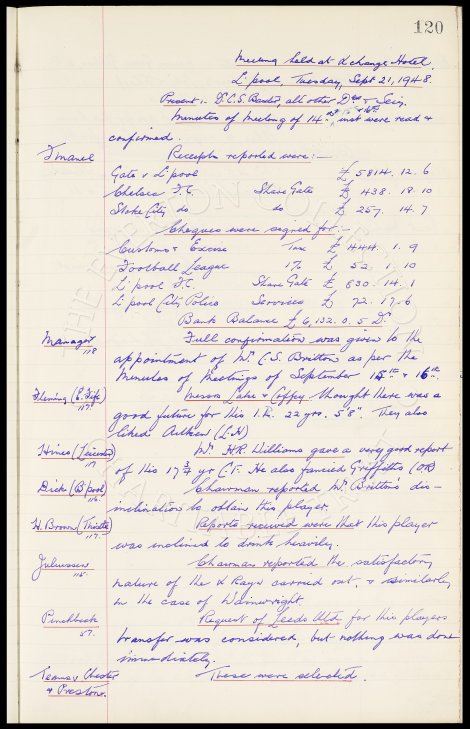 120
Meeting held at Xchange Hotel.
L'pool, Tuesday, Sept 21, 1948.
Present :- W.C.S. Baxter, all other Drs & Secy.
Minutes of Meeting of 14th, inst were read &
confirmed.
Finance Receipts reported were:-
Gate v L'pool £ 5814. 12. 6
Chelsea F.C. Share Gate £ 438. 18. 10
Stoke City do do £ 257. 14. 7
Cheques were signed for:-
Customs & Excise Tax £ 1444. 1. 9
Football League 1% £ 52. 1. 10
L'pool F.C. Share Gate £ 830. 14. 1
L'pool City Police Services £ 72. 17. 6
Bank Balance £ 6,132. 0. 5 Dr.
Manager Full confirmation was given to the
118
appointment of Mr C.S. Britton as per the
Minutes of Meetings of September 15th & 16th.
Fleming (E. Fife) Messrs Lake & Coffey thought there was a
117
good future for this I.R. 22 yrs. 5'8". They also
liked Aitken (L.H)
Hines (Leicester) Mr. HR. Williams gave a very good report
117
of this 17 3/4 yr C.F. He also fancied Griffiths (OR)
Dick (B'pool) Chairman reported Mr Britton's dis-
116.
inclination to obtain this player.
H. Brown (Thistle) Reports received were that this player
117.
was inclined to drink heavily.
Juliussen Chairman reported the satisfactory
115.
nature of the X Rays carried out, & similarly
in the case of Wainwright.
Pinchbeck Request of Leeds Utd. for this players
57.
transfer was considered, but nothing was done
immediately.
Teams v Chester These were selected.
& Preston.
THE EVERTON COLLECTION